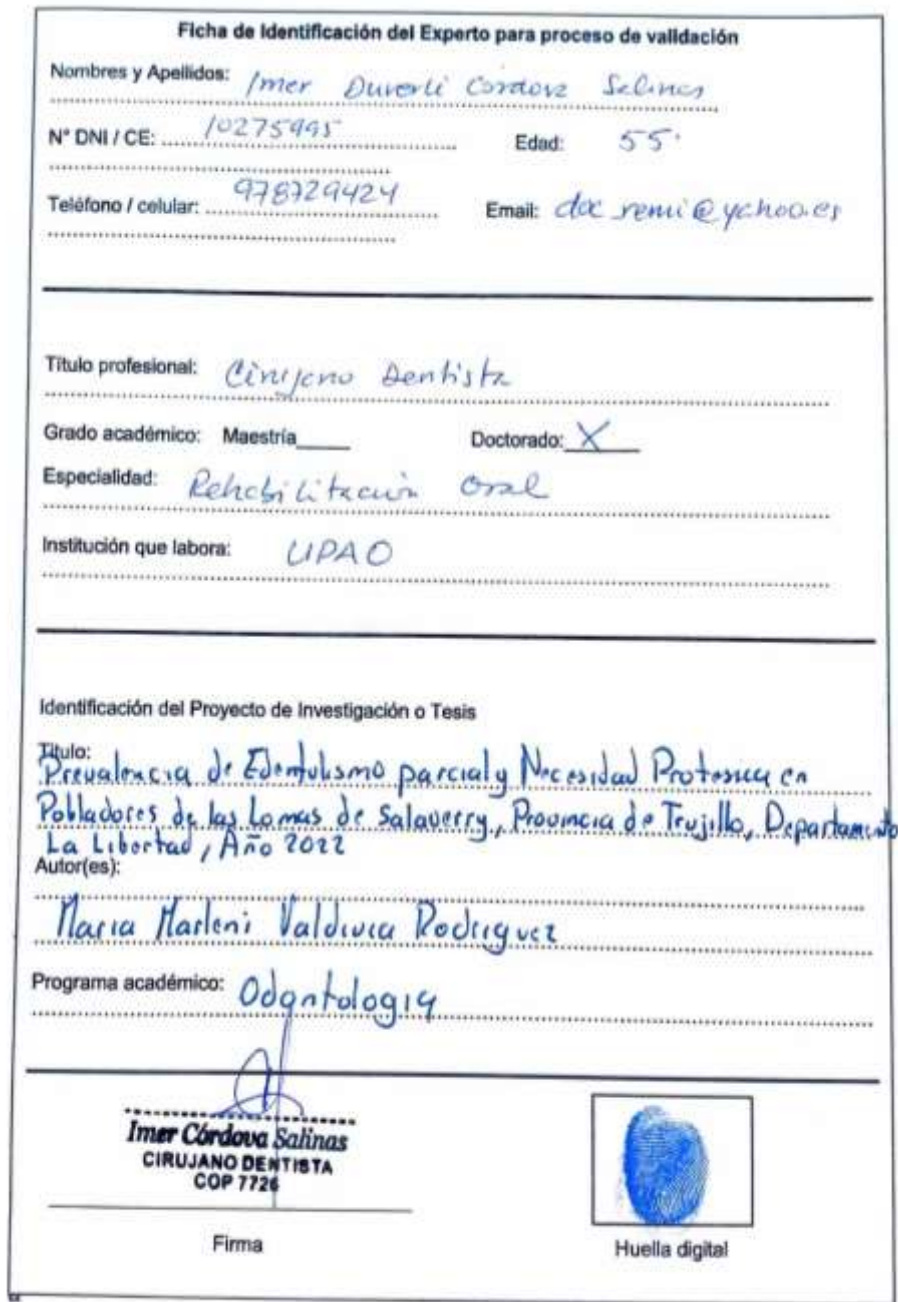 Ficha de Identificación del Experto para proceso de validación
Nombres y Apellidos: Imer Duverli Cordova Salinas
N° DNI / CE: 10275995 Edad: 55.
Teléfono / celular: 978729424 Email: doc_remi@yahoo.es
Título profesional: Cirujano Dentista
Grado académico: Maestría Doctorado: X
Especialidad: Rehabilitación Oral
Institución que labora: UPAO
Identificación del Proyecto de Investigación o Tesis
Título:
Prevalencia de Edentulismo parcial y Necesidad Protesica en
Pobladores de las Lomas de Salaverry, Provincia de Trujillo, Departamento
La Libertad, Año 2022
Autor(es):
Maria Marleni Valdivia Rodriguez
Programa académico: Odontologia
Imer Córdova Salinas
CIRUJANO DENTISTA
COP 7726
Firma Huella digital